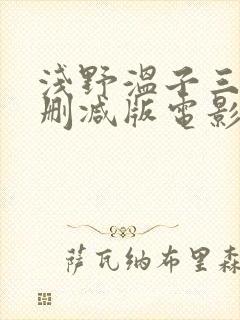 浅野温子三
删减版電影
萨瓦纳布里森